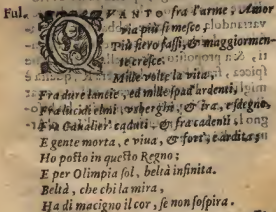 Ful. QVANTO fra l'arme, Amor
via più si mesce,
Più fiero fassi, & maggiormen-
te cresce.
Mille volte la vita,
Fra dure lancie, ed mille spad' ardenti,
Fra lucidi elmi, usberghi, & ira, e sdegno,
Fra Caualier caduti, & fra cadenti,
E gente morta, e viua, & fort', e ardita;
Ho posto in questo Regno;
E per Olimpia sol, beltà infinita.
Beltà, che chi la mira,
Ha di macigno il cor, se non sospira.